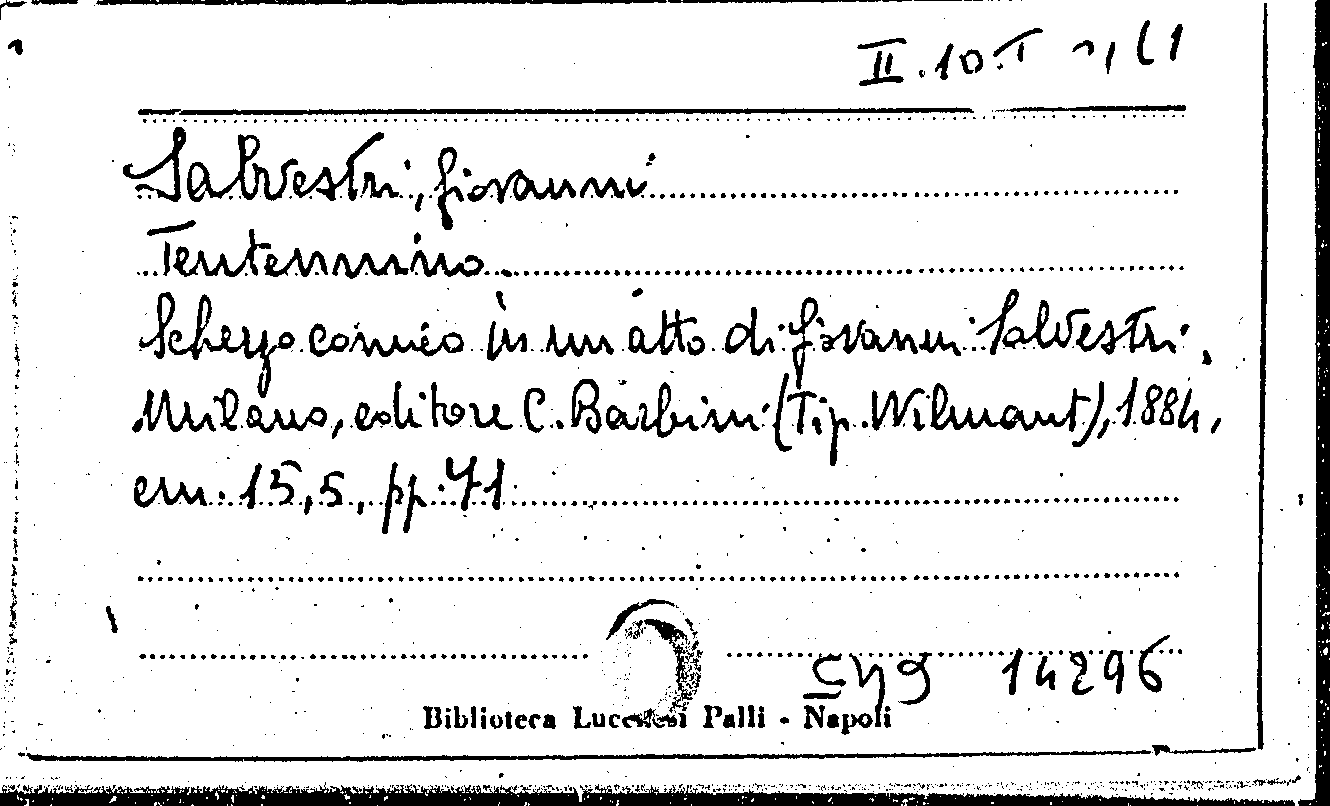 Salvestri, Giovanni
Tentennino.
Scherzo comico in un atto di Giovanni Salvestri.
Milano, editore C. Barbini (Tip. Wilmant), 1884,
cm. 15,5, pp. 71
14296
Biblioteca Lucchesi Palli - Napoli